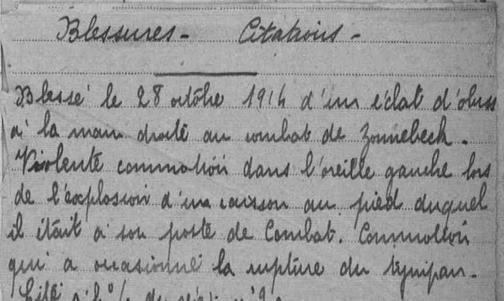 Blessures - Citations -
Blessé le 28 octobre 1914 d'un éclat d'obus
à la main droite au combat de Zonnebeck.
Violente commotion dans l'oreille gauche lors
de l'explosion d'un caisson au pied duquel
il était à son poste de Combat. Commotion
qui a occasionné la rupture du tympan.
Cité à l'